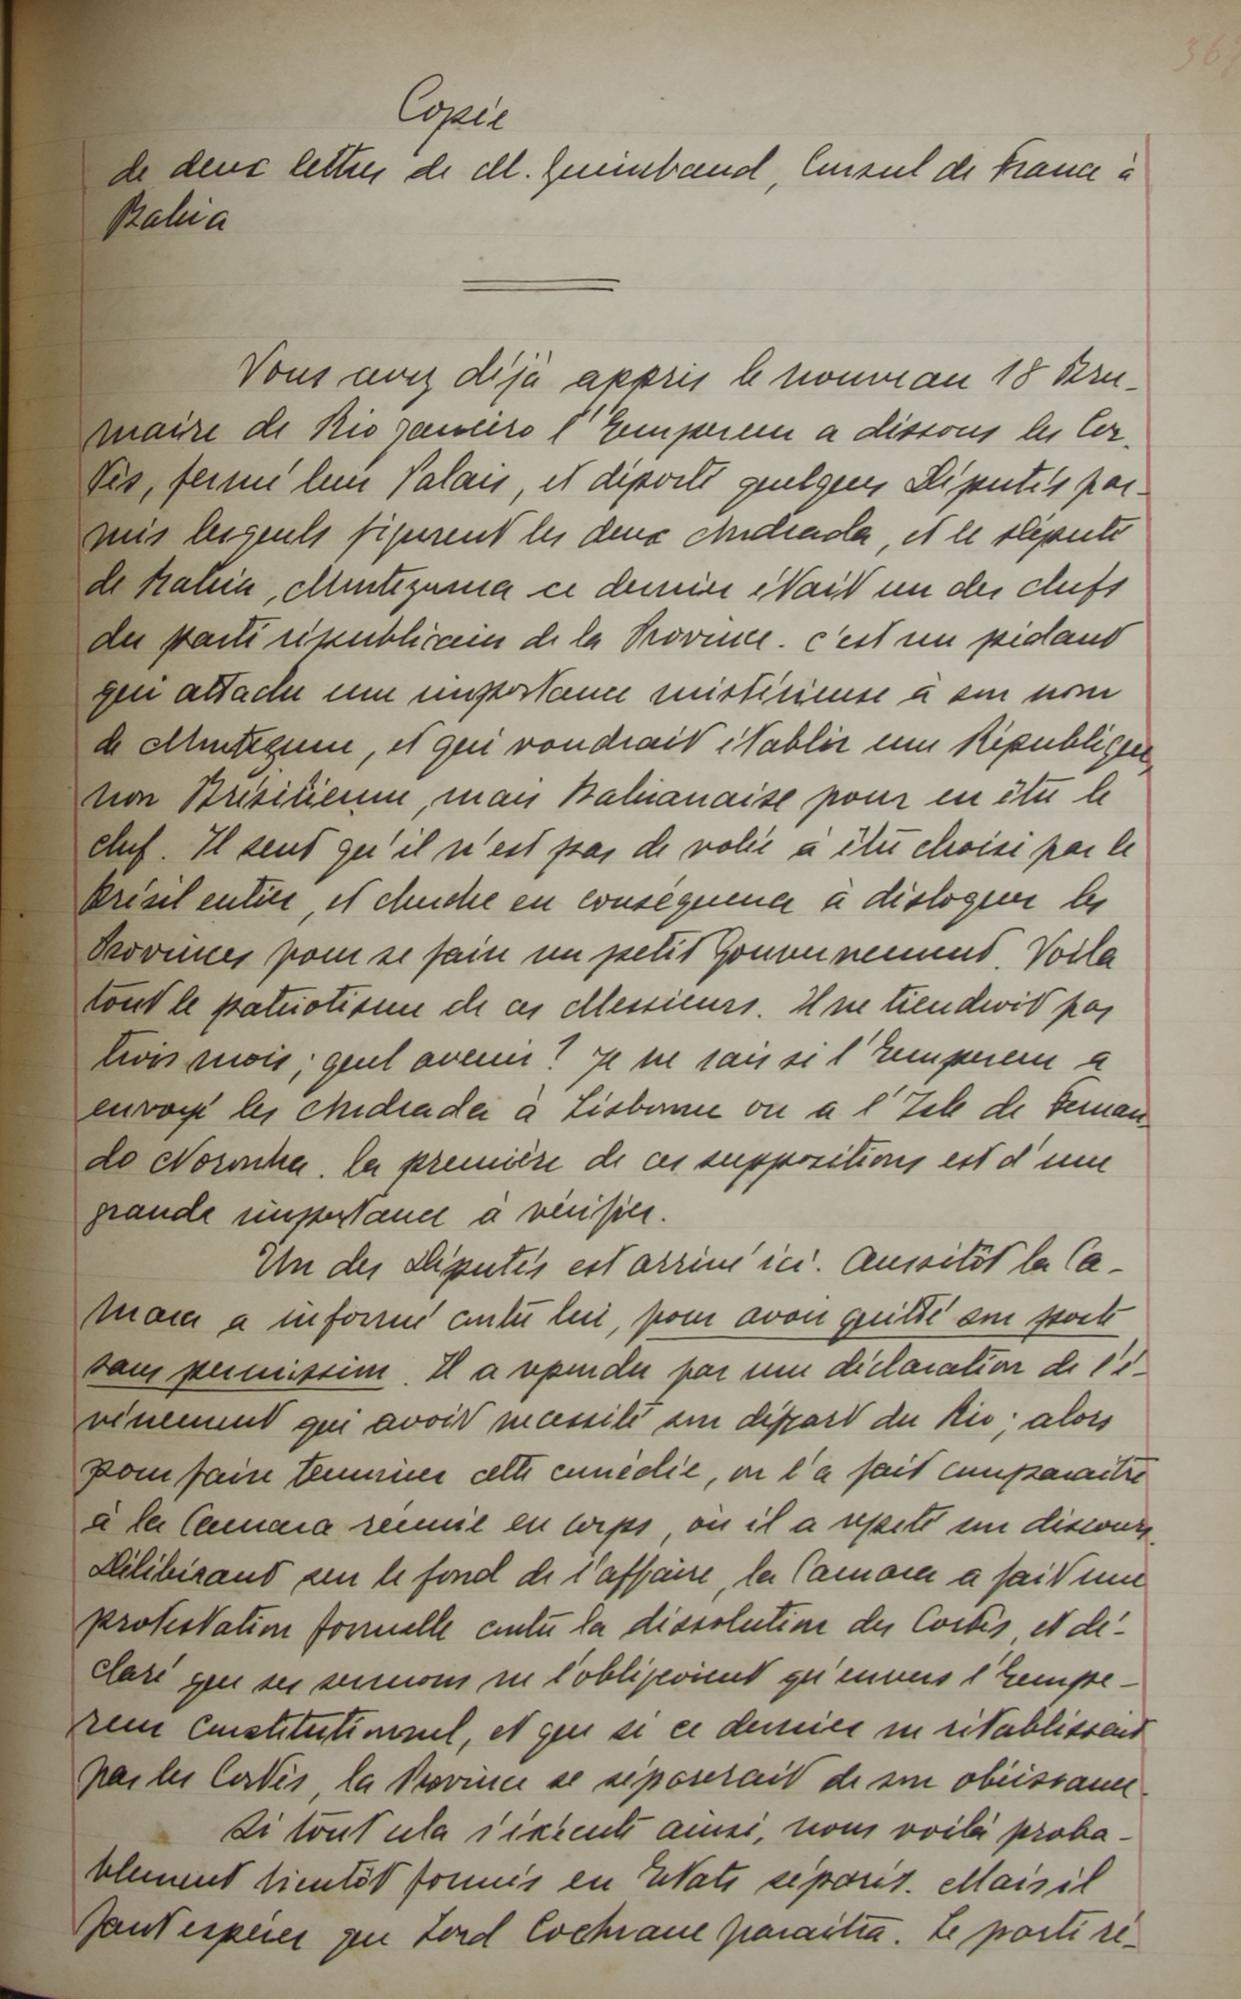 367
Copie
de deux lettres de M. Guinebaud, Consul de France à
Bahia
Vous avez déjà appris le nouveau 18 Bru-
maire de Rio Janeiro l'Empereur a dissous les Cor-
tès, fermé leur Palais, et déporté quelques Députés par-
mis lesquels figurent les deux Andrada, et le Député
de Bahia, Montezuma ce dernier était un des chefs
du parti républicain de la Province. c'est un pédant
qui attache une importance mistérieuse à son nom
de Montezume, et qui voudrait établir une République,
non Brésilienne, mais Bahianaise pour en être le
chef. Il sent qu'il n'est pas de volée à être choisi par le
Brésil entier, et cherche en conséquence à disloquer les
Provinces pour se faire un petit Gouvernement. Voila
tout le patriotisme de ces Messieurs. Il ne tiendroit pas
trois mois; quel avenir! Je ne sais si l'Empereur a
envoyé les Andrada à Lisbonne ou a l'Isle de Fernan-
do Noronha. la première de ces suppositions est d'une
grande importance à vérifier.
Un des Députés est arrivé ici. Aussitôt la Ca-
mara a informé contre lui, pour avoir quitté son poste
sans permission. Il a repondu par une déclaration de l'é-
vénement qui avoit necessité son départ du Rio; alors
pour faire terminer cette comédie, on l'a fait comparaitre
à la Camara réunie en corps, où il a repeté son discours.
Délibérant sur le fond de l'affaire, la Camara a fait une
protestation formelle contre la dissolution des Cortès, et dé-
claré que ses sermons ne l'obligeoient qu'envers l'Empe-
reur constitutionnel, et que si ce dernier ne rétablissait
pas les Cortès, la Province se séparerait de son obéissance.
Si tout cela s'éxécute ainsi, nous voilà proba-
blement bientôt formés en Etats séparés. Mais il
faut espérer que Lord Cochrane paraitra. Le parti ré-